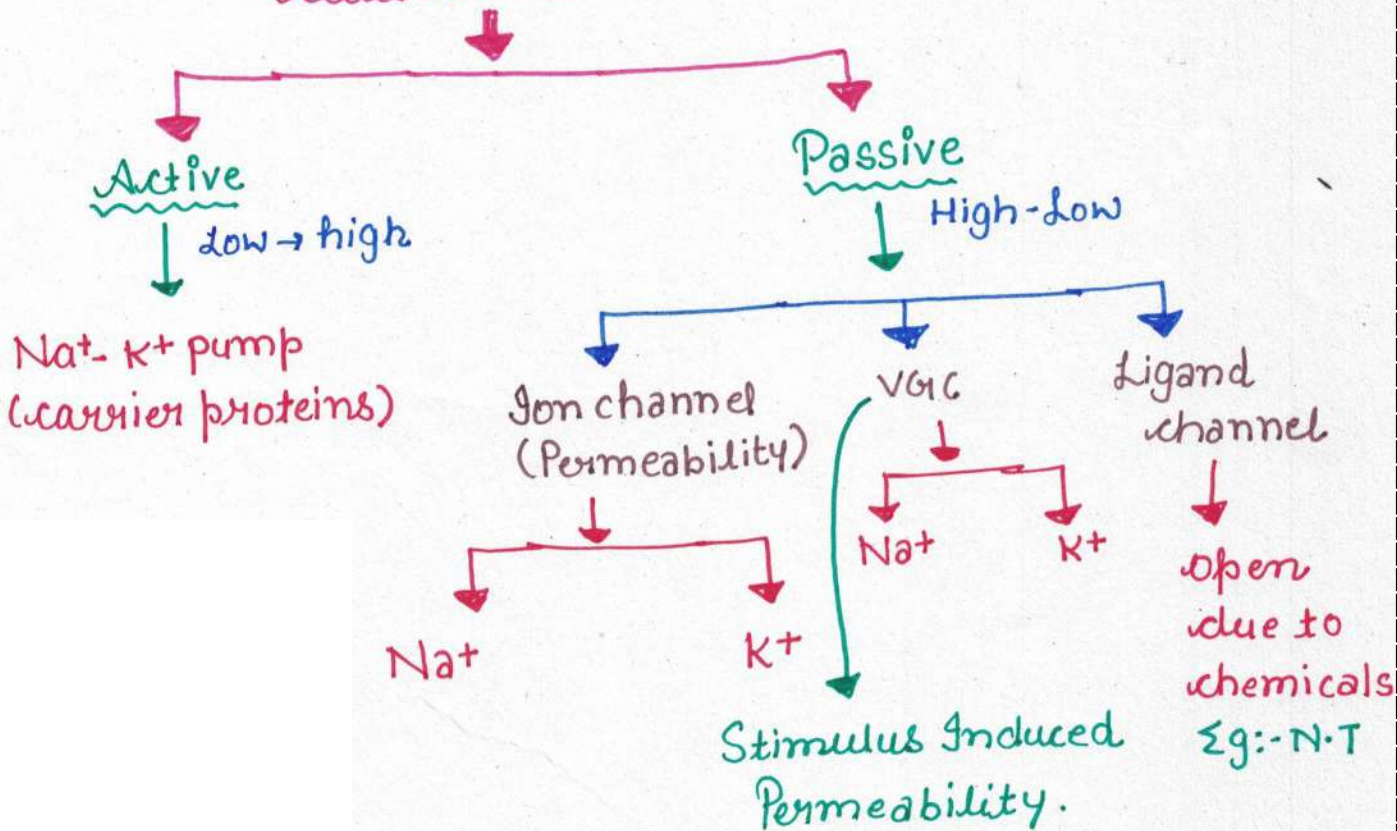 Active
Low → high
Na+- K+ pump
(carrier proteins)
Passive
High-Low
Ion channel
(Permeability)
Na+
K+
VGC
Na+
K+
Stimulus Induced
Permeability.
Ligand
channel
open
due to
chemicals
Eg:- N.T